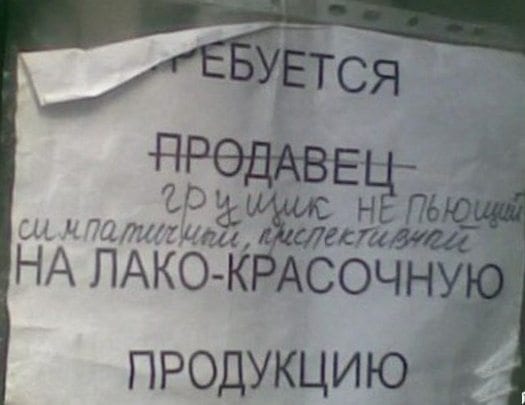 ТРЕБУЕТСЯ
ПРОДАВЕЦ
грущик НЕ ПЬЮщий
симпатичный, приспективный
НА ЛАКО-КРАСОЧНУЮ
ПРОДУКЦИЮ